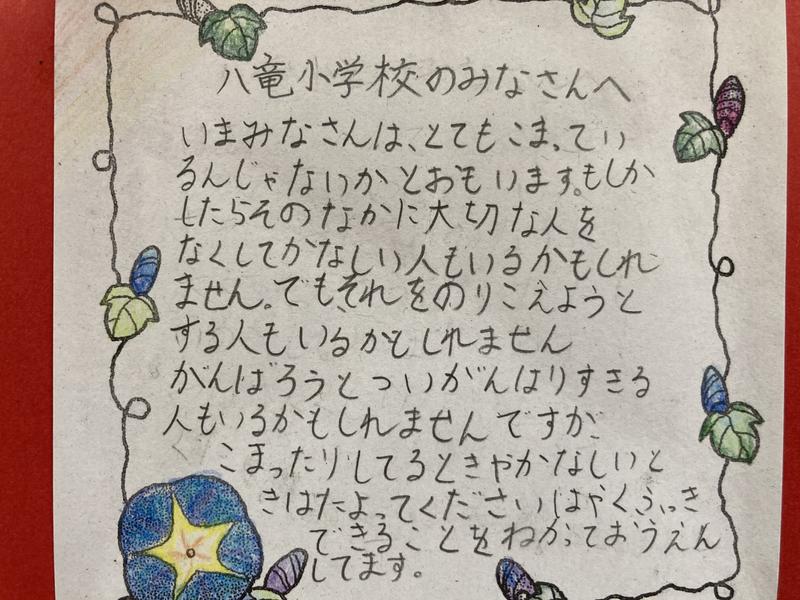 八竜小学校のみなさんへ
いまみなさんは、とてもこまってい
るんじゃないかとおもいます。もしか
したらそのなかに大切な人を
なくしてかなしい人もいるかもしれ
ません。でもそれをのりこえようと
する人もいるかもしれません
がんばろうとついがんはりすきる
人もいるかもしれませんですが、
こまったりしてるときやかなしいと
きはたよってくださいはやくふっき
できることをねがっておうえん
してます。